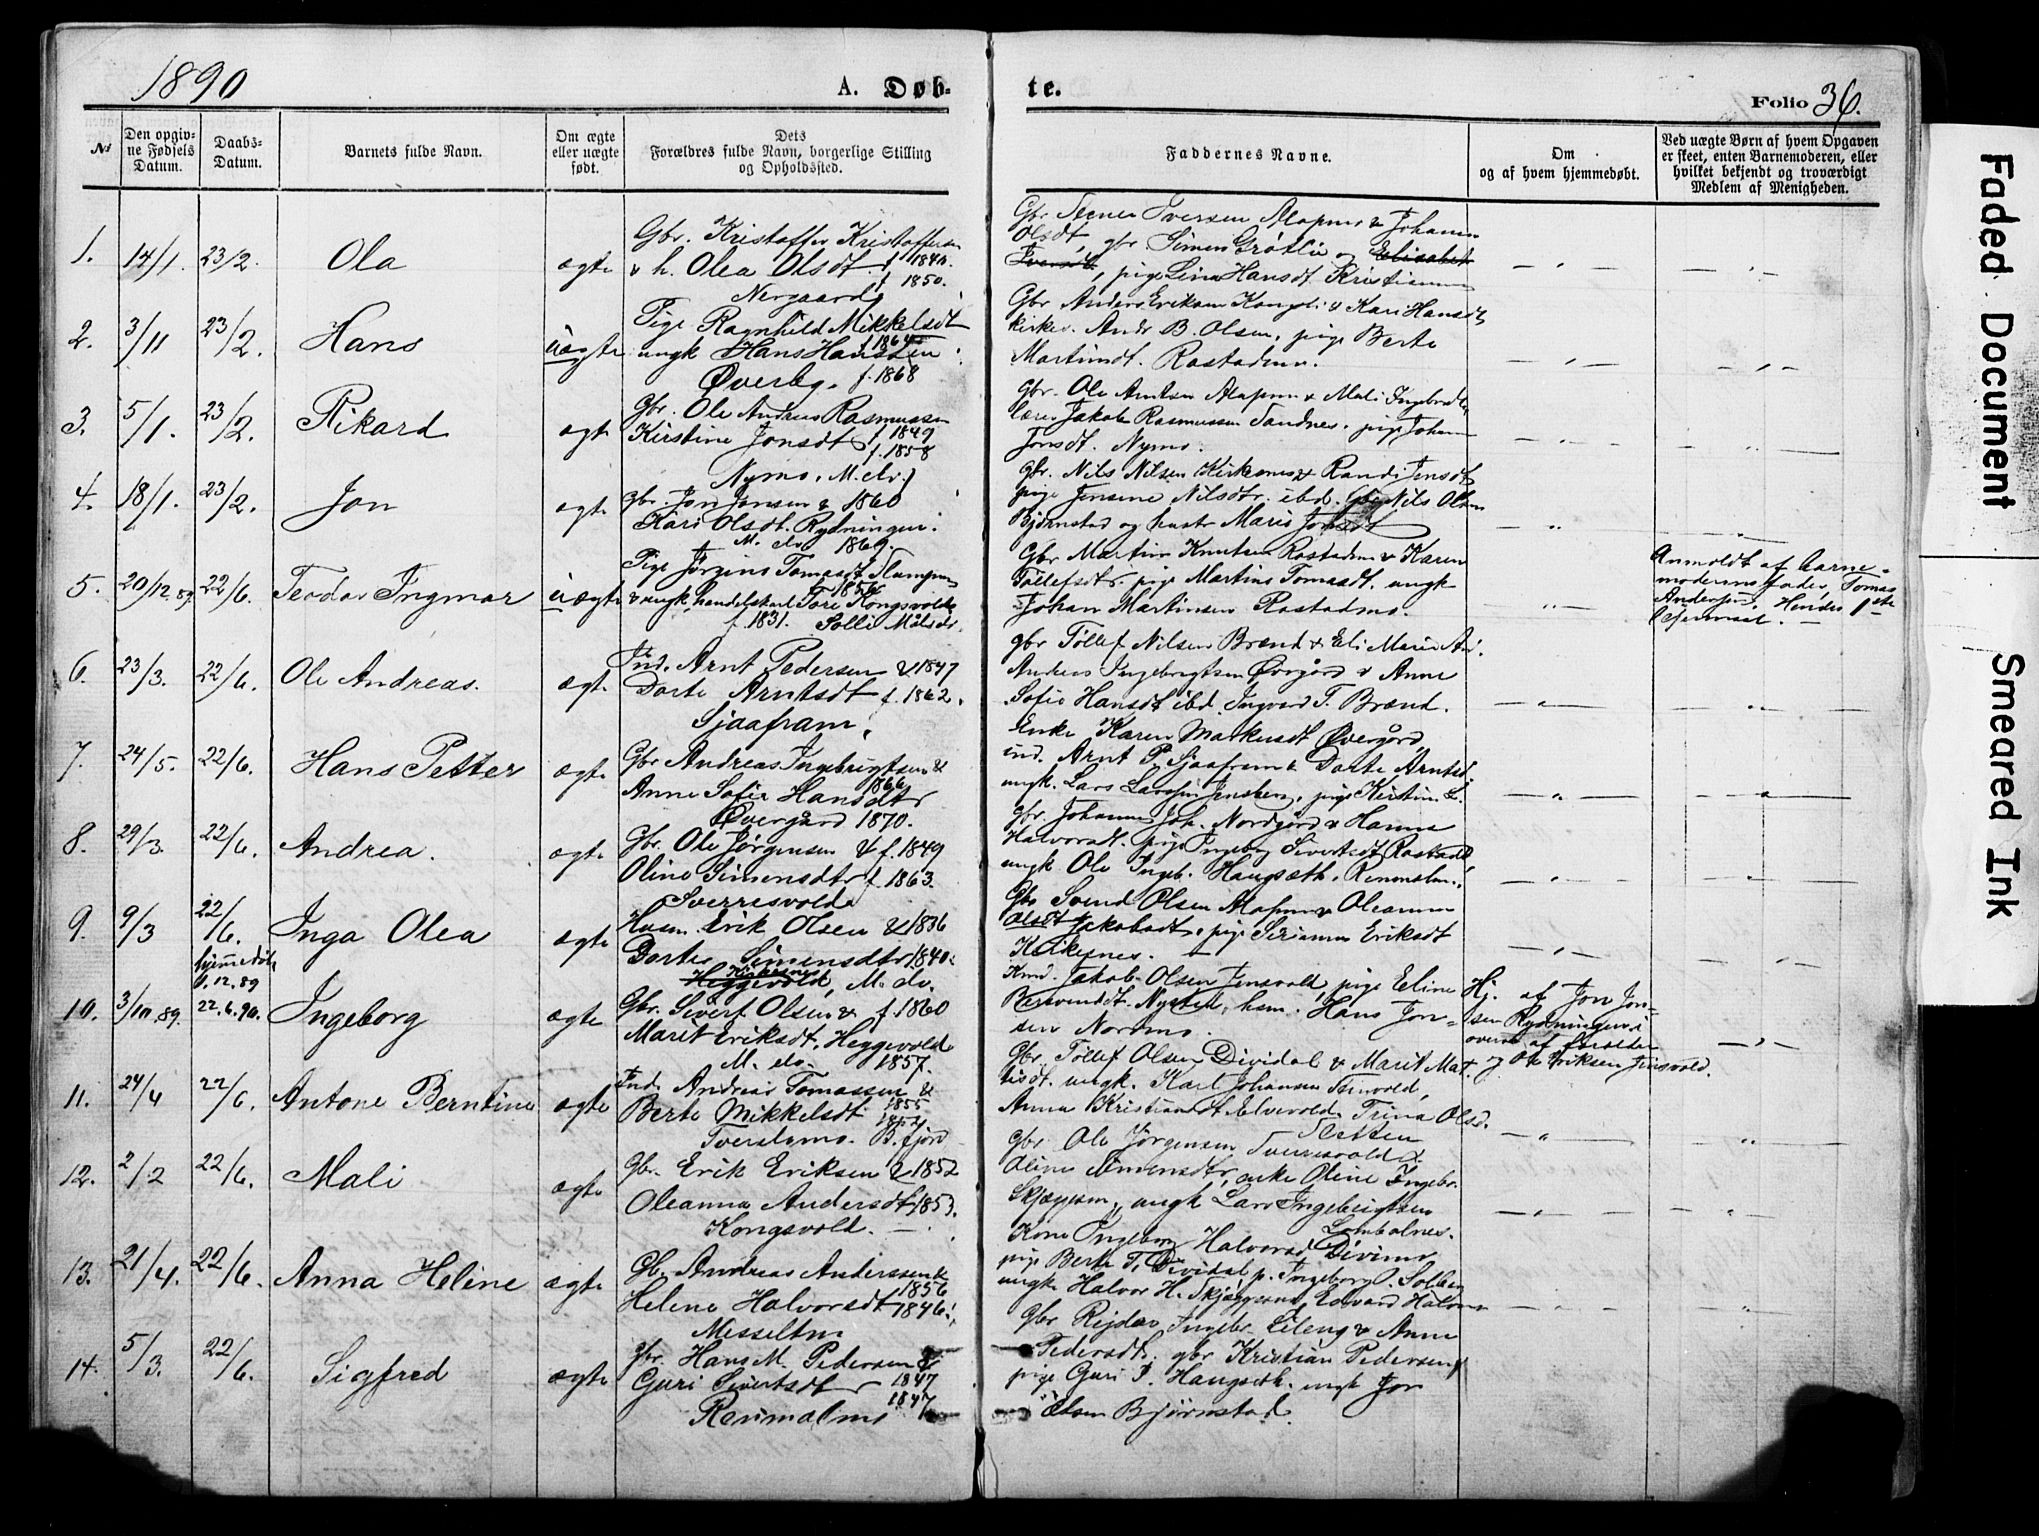 1890
A. Døb-
te.
Folio 36.
No
Den opgiv-
ne Fødsels
Datum.
Daabs-
Datum.
Barnets fulde Navn.
Om ægte
eller uægte
født.
Dets
Forældres fulde Navn, borgerlige Stilling
og Opholdssted.
Faddernes Navne.
Om
og af hvem hjemmedøbt.
Ved uægte Børn af hvem Opgaven
er skeet, enten Barnemoderen, eller
hvilket bekjendt og troværdigt
Medlem af Menigheden.
1. 14/1. 23/2. Ola ægte
Gbr. Kristoffer Kristoffersen
& h. Olea Olsdt. f. 1840.
f. 1850.
Nergaard
Gbr. Iversen & Johanna
Olsdt, gbr Simen Grøtlie og Elisabet
Iversdt, pige Lina Hansdt Kristiansen
2. 3/11 23/2. Hans uægte
Pige Ragnhild Mikkelsdt
f 1864
ungk Hans Hanssen
Øverby. f. 1868
Gbr Anders Eriksen Kongsli & Kari Hansdt,
kirkes. Andr B. Olsen, pige Berte
Martinsdt. Rostadmo.
3. 5/1. 23/2. Rikard ægte
Gbr. Ole Andreas Rasmussen
Kirstine Jonsdt f. 1849
f. 1858
Nymo, M. elv.
Gbr. Ole Arntsen & Mali Ingebrdt.
lærer Jakob Rasmussen Sandnes. pige Johanna
Jonsdt. Nymo.
4. 18/1. 23/2. Jon ægte
gbr. Jon Jonsen & 1860
Kari Olsdt. Rydningen.
M. elv 1869.
gbr. Nils Nilsen Kirkenes & Randi Jensdt
pige Jensine Nilsdtr. ibd. Gbr Nils Olsen
Bjørnstad og hustr Maris Jonsdt
5. 20/12.89. 22/6. Teodor Ingmar uægte
Pige Jørgine Tomasdt Rumpen
1856
& ungk handelskarl Tore Kongsvold,
f. 1831. Solli Målselv.
Gbr Martin Knutsen Rostadmo & Karen
Tollefsdt. pige Martine Tomasdt. ungk
Johan Martinsen Rostadmo.
Anmeldt af barne-
moderens fader, Tomas
Andersen. Hendes 1ste
leiermaal.
6. 23/3. 22/6. Ole Andreas. ægte
Ind. Arnt Pedersen & 1847
Dorte Arntsdt f. 1862.
Sjaafram.
gbr Tollef Nilsen Brænd & Eli Marie
Andreas Ingebrigtsen Øvrgård & Anne
Sofie Hansdt ibd. Ingvard T. Brænd.
Enke Karen Markusdt Øvergård.
7. 24/5. 22/6. Hans Petter ægte
Gbr Andreas Ingebrigtsen &
1866
Anne Sofie Hansdtr
Øvergård 1870.
ind. Arnt P. Sjaafram & Dorte Arntsd.
ungk. Lars Larssen Jensberg, pige Kirstine L.
8. 29/3. 22/6. Andrea. ægte
Gbr. Ole Jørgensen & f. 1849
Oline Simensdtr f. 1863.
Sverresvold
gbr. Johannes Joh. Nordgård & Hanna
Halvorsdt. pige Ingeborg Sivertsdt Rostad,
ungk Ole Ingeb. Haugsæth, Rennmelmo.
9. 9/3 22/6. Inga Olea ægte
Husm. Erik Olsen & 1836
Dortea Simensdtr 1840.
Kirkenes
Heggevold, M. elv.
Gbr Svend Olsen & Oleanna
Olsdt Jakobsdt, pige Serianna Eriksdt
Kirkesnes.
hjemmedøbt
1.12.89
10. 3/10.89. 22.6.90. Ingeborg ægte
Gbr. Sivert Olsen & f. 1860
Marit Eriksdt. Heggevold
M. elv 1857.
Kmd. Jakob Olsen Jensvold, pige Eline
Bersvendt. Nysted, hsm. Hans Jon-
sen Nordmo.
Hj. af Jon Jon-
sen Rydningen i
overv. af forældre
& Ole Eriksen Jensvold.
11. 24/4 22/6. Antone Berntine ægte
Ind. Andreas Tomassen &
Berte Mikkelsdt 1855
1852
Tverelvmo. B. fjord
Gbr. Tollef Olsen Dividal & Marit Mat-
tisdt. ungk. Karl Johansen Steinvold,
Anna Kristiansdt Elvevold, Trina Olsd.
Sletten
12. 2/2 22/6. Mali ægte
Gbr. Erik Eriksen & 1852
Oleanna Andersdt 1853.
Kongsvold.
gbr. Ole Jørgensen Sverresvold &
Oline Simensdtr, enke Oline Ingebr.
Skjæggesen, ungk Lars Ingebrigtsen
Lombolnes.
13. 21/4. 22/6. Anna Heline ægte
Gbr. Andreas Anderssen &
1856
Helene Halvorsdt 1846.
Messeltmo
Kone Ingeborg Halvorsd Divimo
pige Berte T. Dividal p. Ingeborg O. Solberg
ungk Halvor H. Skjæggesnes, Edvard Halvorsen
14. 5/3. 22/6. Sigfred ægte
gbr. Hans M. Pedersen &
Guri Sivertsdtr 1847
1847
Renmælmo
Gbr Rejdar Ingebr. Lileng & Anne
Pedersdt. gbr Kristian Pedersen,
pige Guri P. Haugseth. ungk Jon
Olsen Bjørnstad.
Faded Document
Smeared Ink